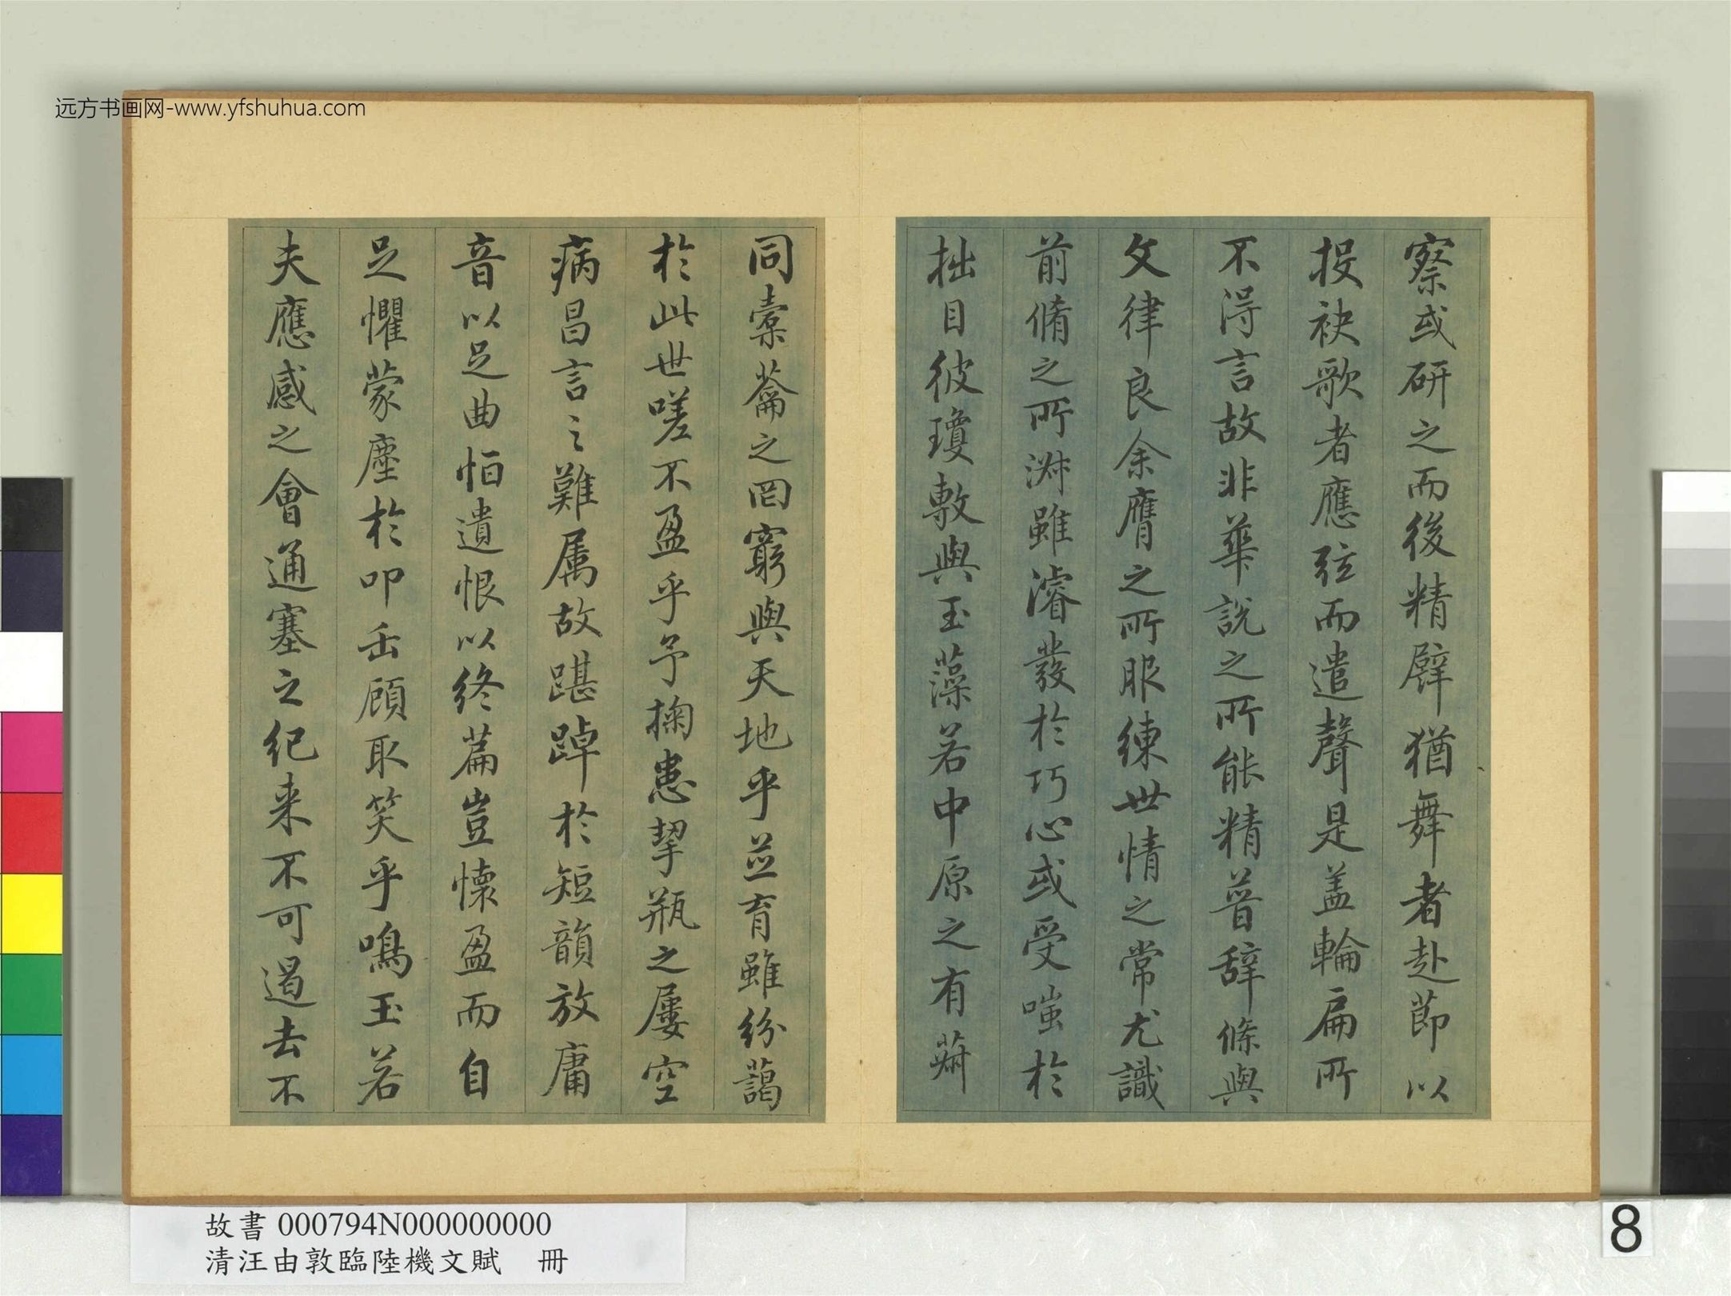 远方书画网-www.yfshuhua.com
察或研之而後精譬猶舞者赴節以
投袂歌者應弦而遣聲是盖輪扁所
不得言故非華說之所能精普辭條與
文律良余膺之所服練世情之常尤識
前脩之所淋雖濬發於巧心或受嗤於
拙目彼瓊敷與玉藻若中原之有菽
同橐蘥之罔窮與天地乎並育雖紛藹
於此世嗟不盈乎予掬患挈瓶之屢空
病昌言之難属故踸踔於短韻放庸
音以足曲怕遺恨以終篇豈懷盈而自
足懼蒙塵於叩缶顧取笑乎鳴玉若
夫應感之會通塞之紀来不可遏去不
故書 000794N000000000
清汪由敦臨陸機文賦 冊
8